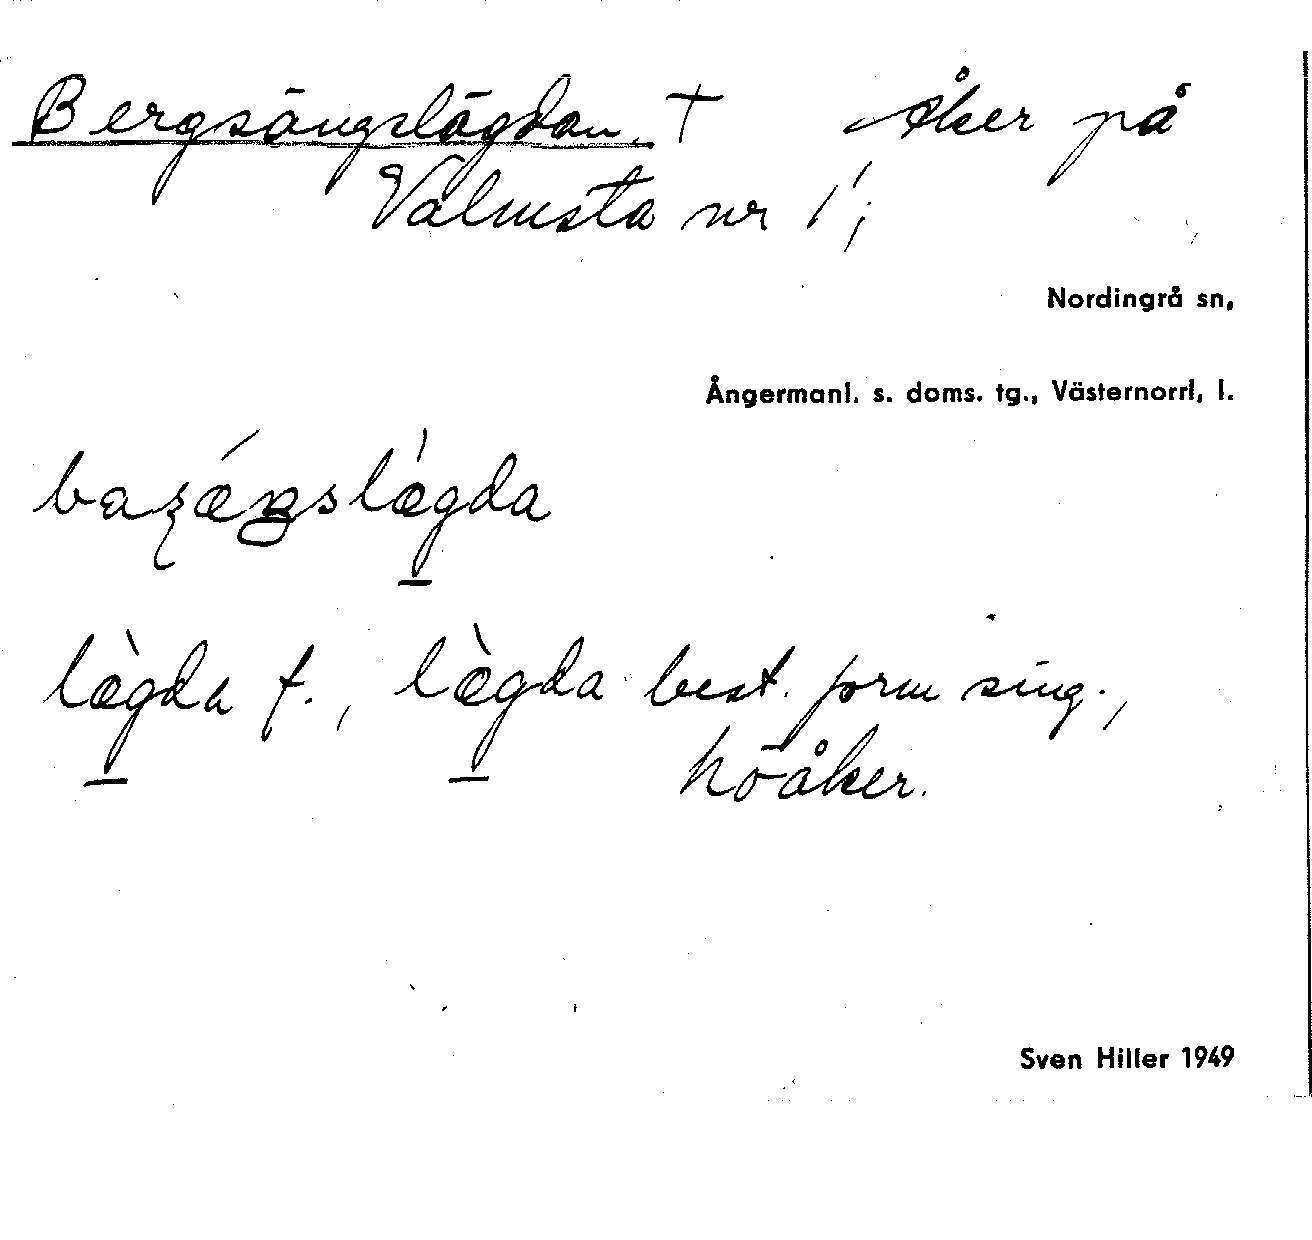 Bergsängslägdan. † Åker på
Valmsta nr 1;
Nordingrå sn,
Ångermanl. s. doms. tg., Västernorrl, l.
lægda f., lægda best. form sing.,
höåker.
Sven Hiller 1949